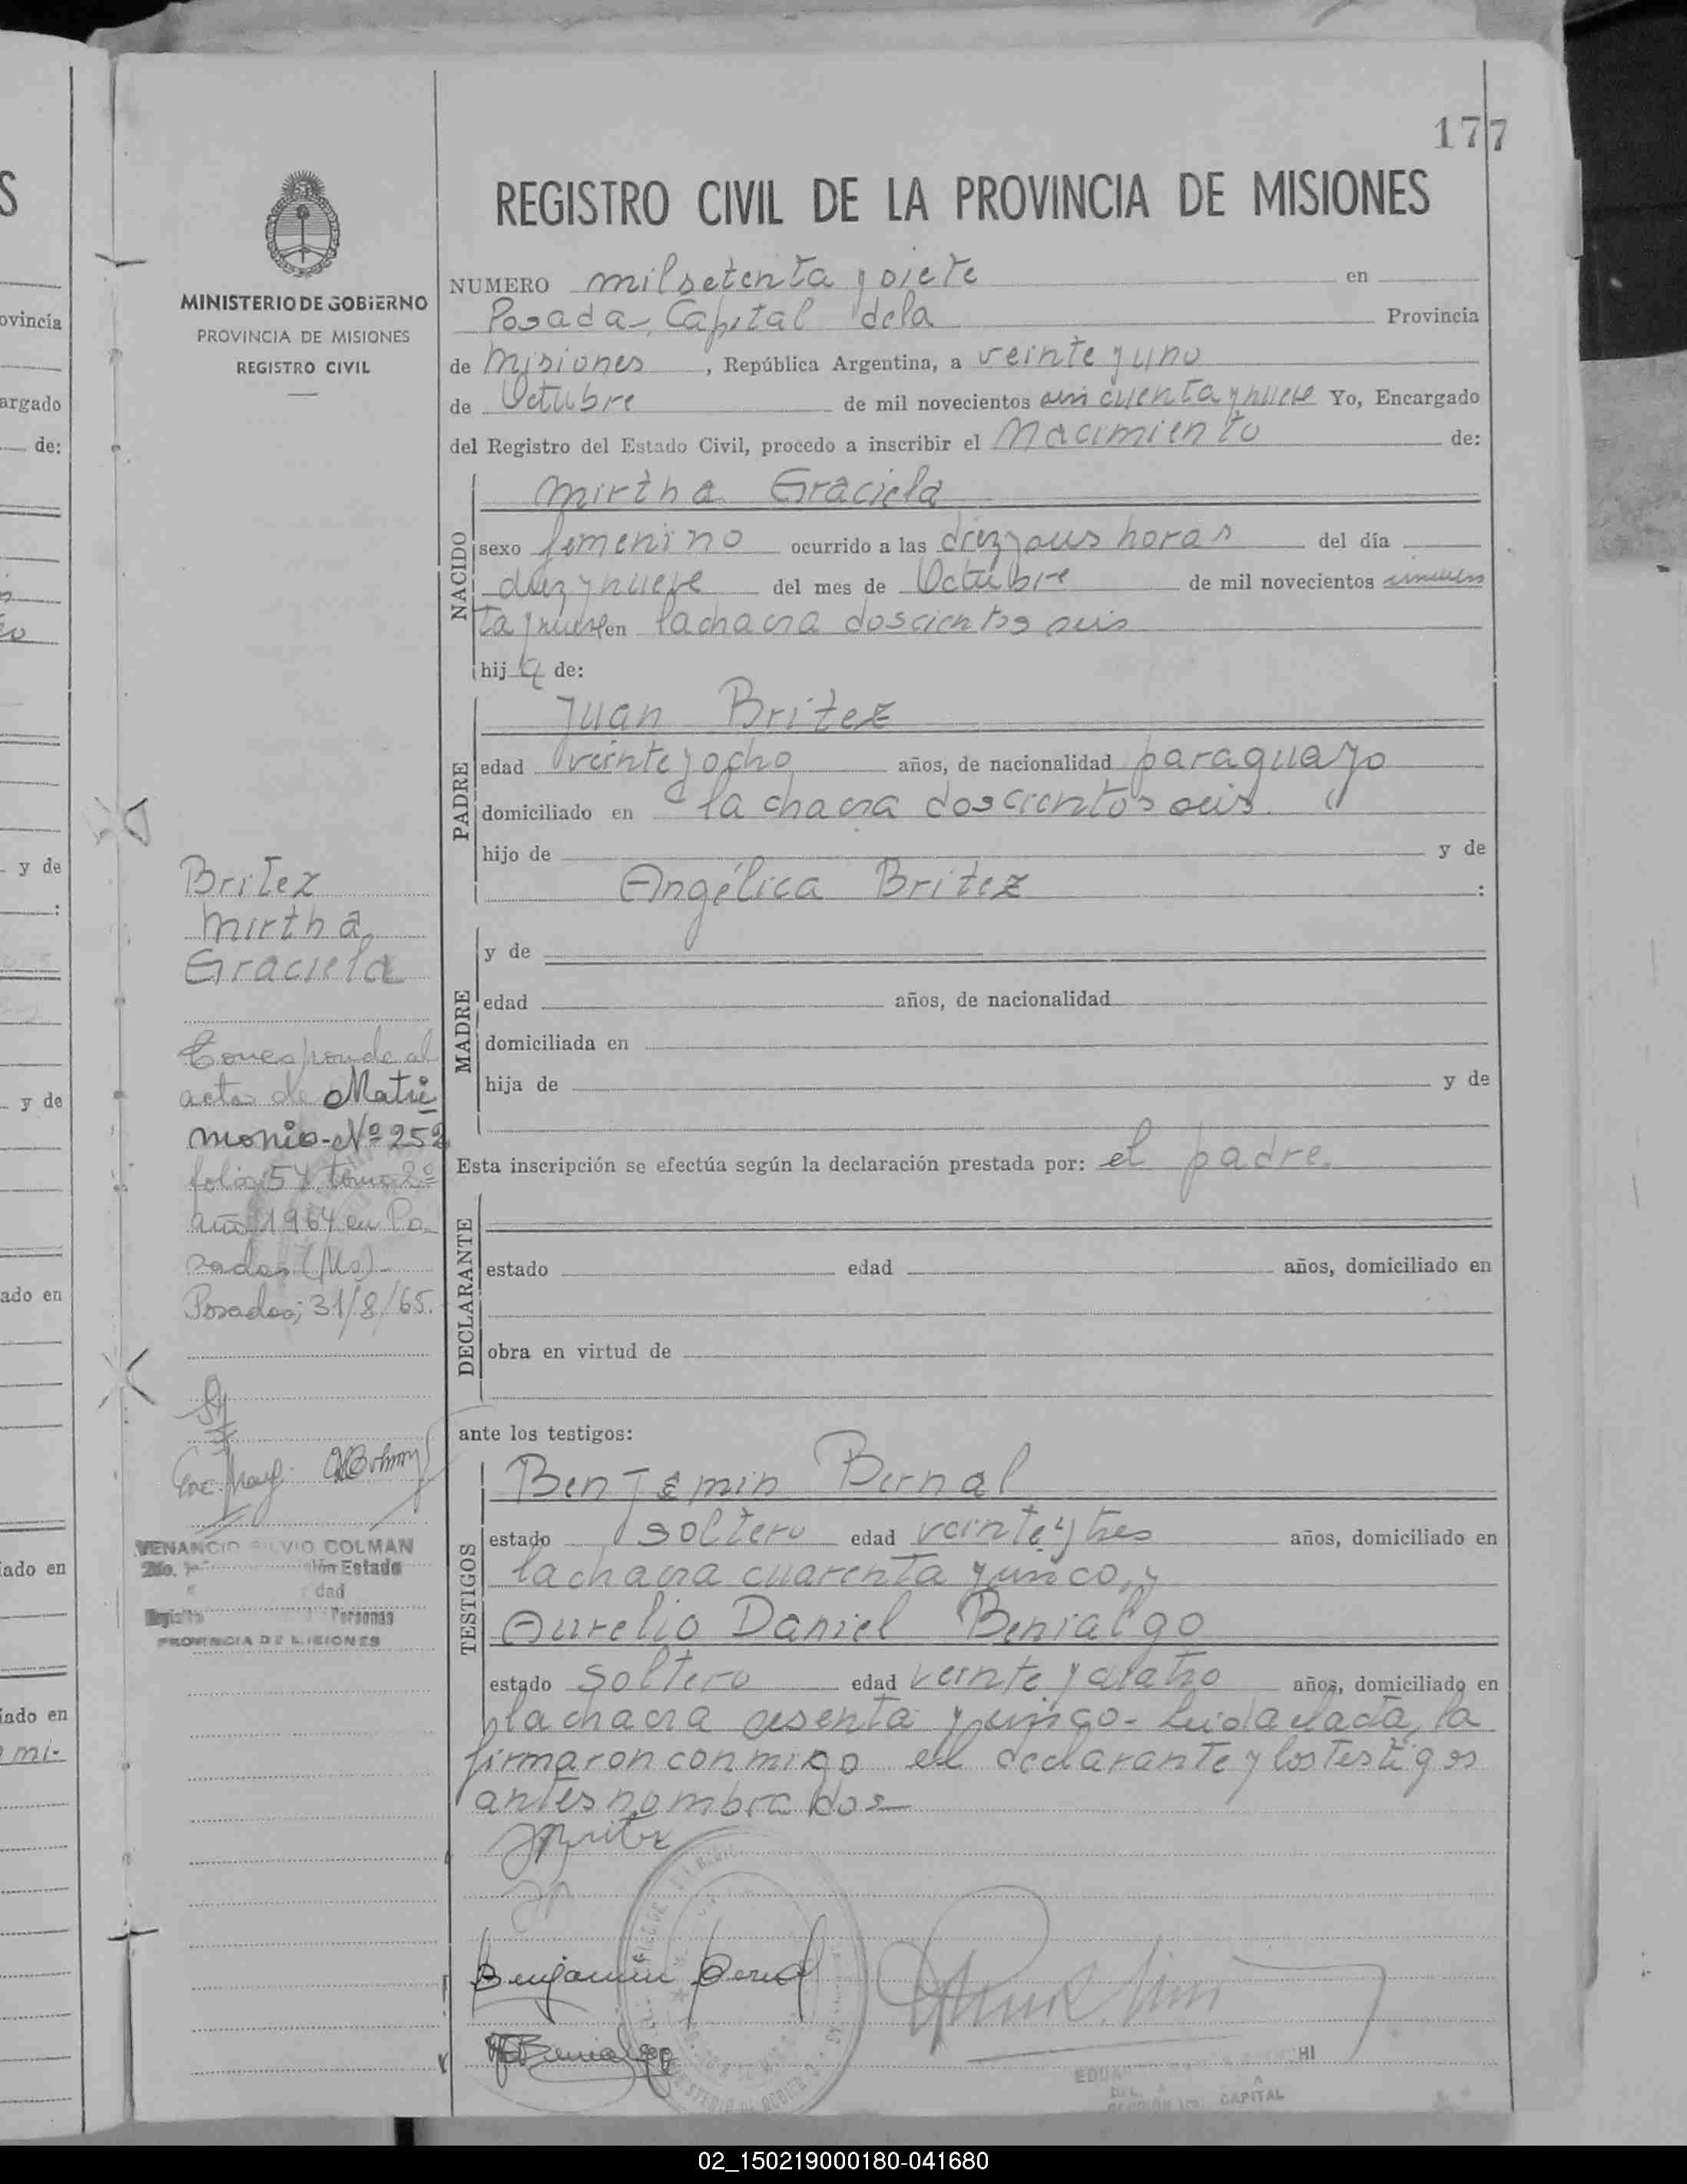 177
REGISTRO CIVIL DE LA PROVINCIA DE MISIONES
MINISTERIO DE GOBIERNO
PROVINCIA DE MISIONES
REGISTRO CIVIL
NUMERO mil setenta y siete en
Posadas Capital de la Provincia
de Misiones, República Argentina, a veinte y uno
de Octubre de mil novecientos cincuenta y nueve Yo, Encargado
del Registro del Estado Civil, procedo a inscribir el Nacimiento de:
NACIDO
Mirtha Graciela
sexo femenino ocurrido a las diez y seis horas del día
diez y nueve del mes de Octubre de mil novecientos cincuen
ta y nueve en la chacra doscientos seis
hija de:
PADRE
Juan Britez
edad veinte y ocho años, de nacionalidad paraguayo
domiciliado en la chacra doscientos seis.
hijo de y de
Angélica Britez :
MADRE
y de
edad años, de nacionalidad
domiciliada en
hija de y de
Esta inscripción se efectúa según la declaración prestada por: el padre.
DECLARANTE
estado edad años, domiciliado en
obra en virtud de
ante los testigos:
TESTIGOS
Benjamin Bernal
estado soltero edad veinte y tres años, domiciliado en
la chacra cuarenta y cinco, y
Aurelio Daniel Benialgo
estado soltero edad veinte y cuatro años, domiciliado en
la chacra sesenta y cinco - Leida el acta, la
firmaron conmigo el declarante y los testigos
antes nombrados
JBritez
Benjamin Bernal
Benialgo
CAPITAL
Britez
Mirtha
Graciela
Corresponde al
acta de Matri
monio - Nº 252
folio 54 tomo 2º
año 1964 en Po
sadas (Ms)
Posadas; 31/8/65.
VENANCIO SILVIO COLMAN
Estado
Personas
PROVINCIA DE MISIONES
ovincia
argado
de:
y de
:
y de
ado en
iado en
iado en
mi-
02_150219000180-041680